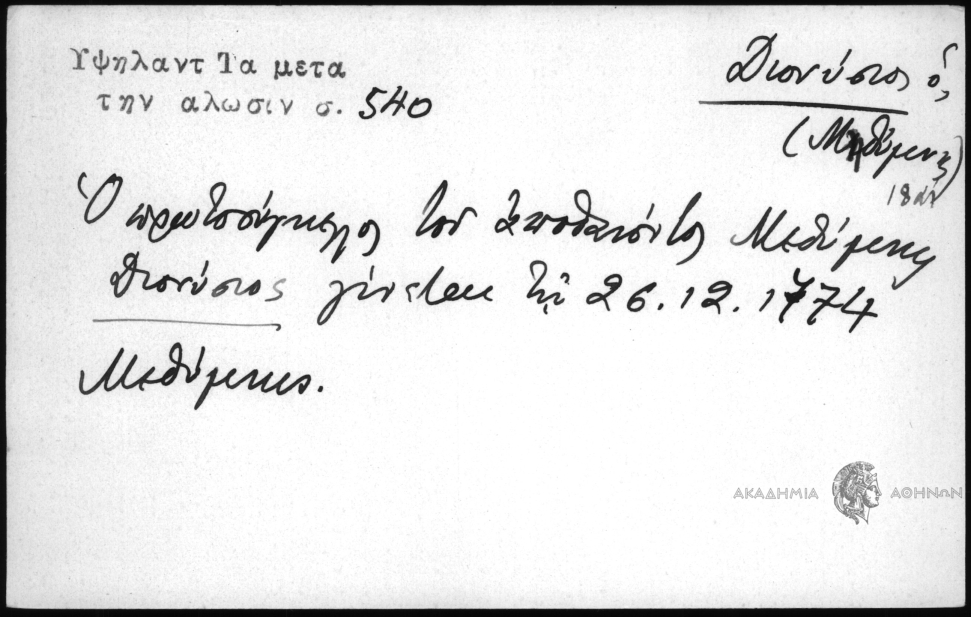 Υψηλαντ Τα μετα
την αλωσιν σ. 540
Διονύσιος ὁ,
(Μηθύμνης)
18 αἰ
Ὁ πρωτοσύγκελλος τοῦ ἀποθανόντος Μηθύμνης
Διονύσιος γίνεται τῇ 26.12.1774
Μηθύμνης.
ΑΚΑΔΗΜΙΑ ΑΘΗΝΩΝ